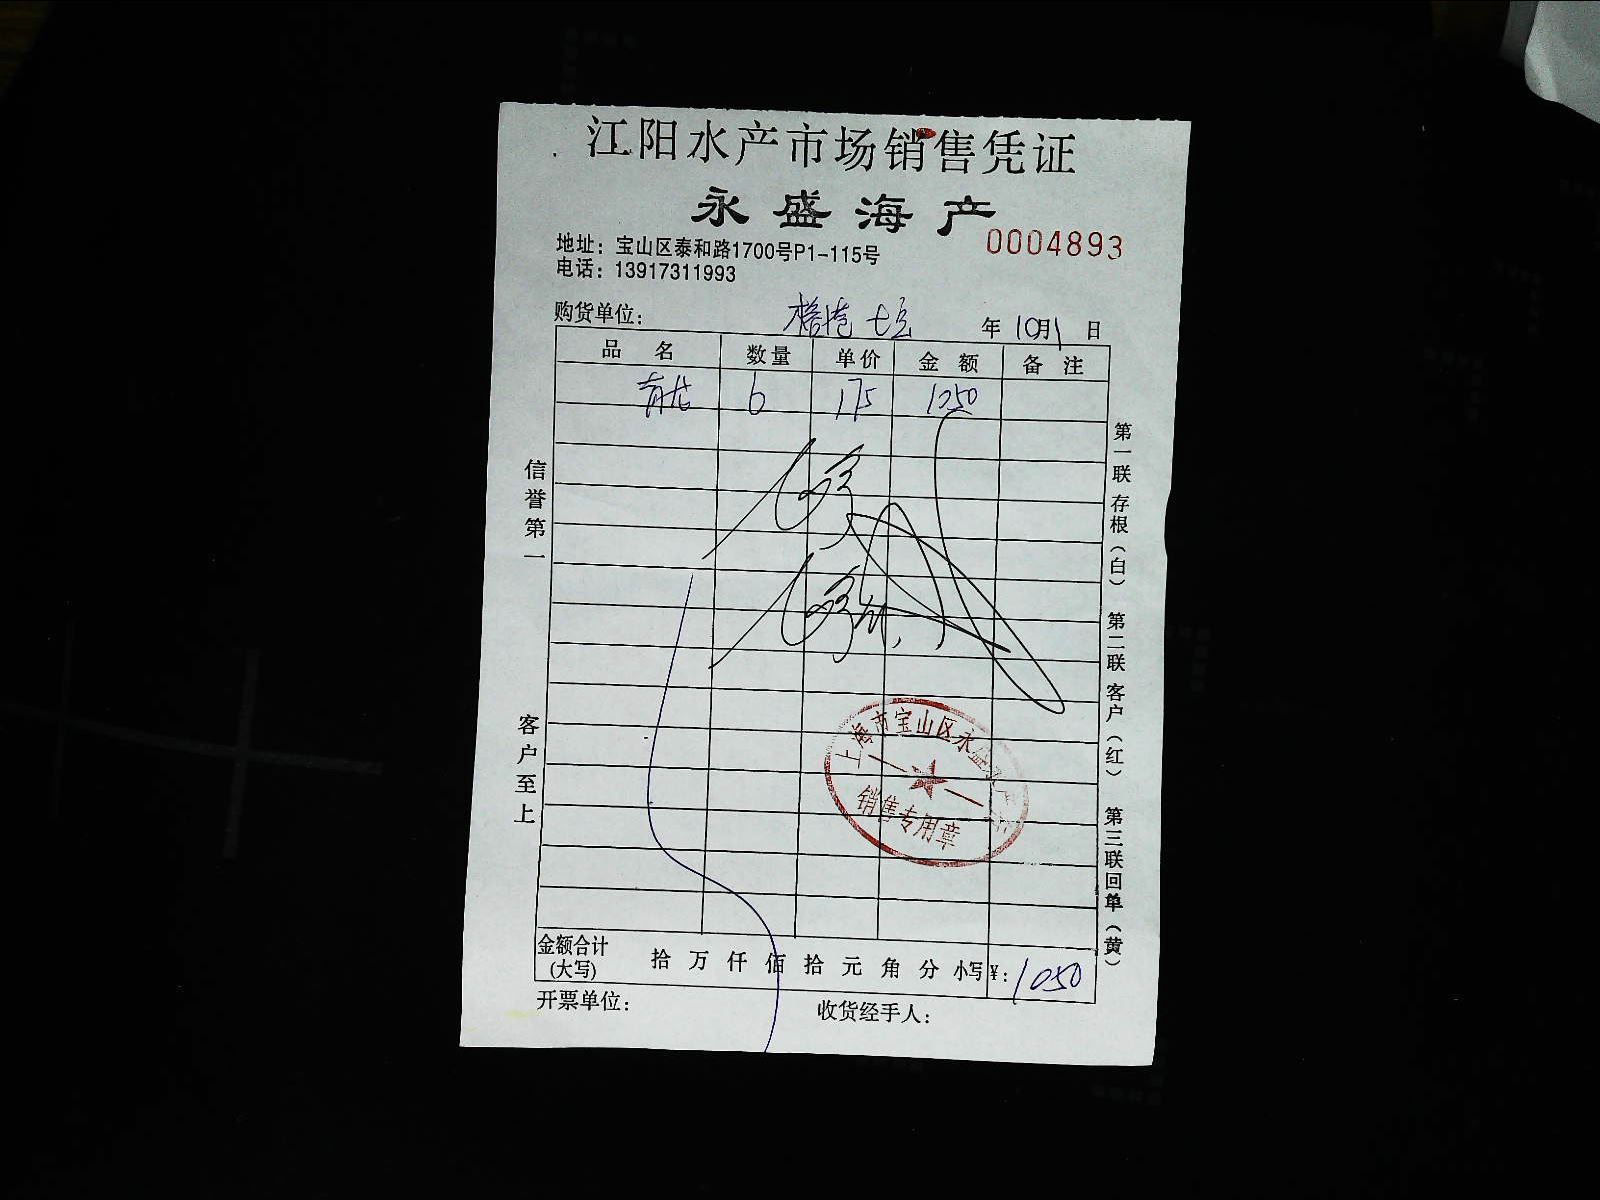 江阳水产市场销售凭证
永盛海产
0004893
地址：宝山区泰和路1700号P1-115号
电话：13917311993
购货单位： 年10月1日
品名 数量 单价 金额 备注
6 175 1050
信誉第一
客户至上
第一联存根（白）
第二联客户（红）
第三联回单（黄）
上海市宝山区永盛水产
销售专用章
金额合计(大写) 拾万仟佰拾元角分 小写¥：1050
开票单位： 收货经手人：